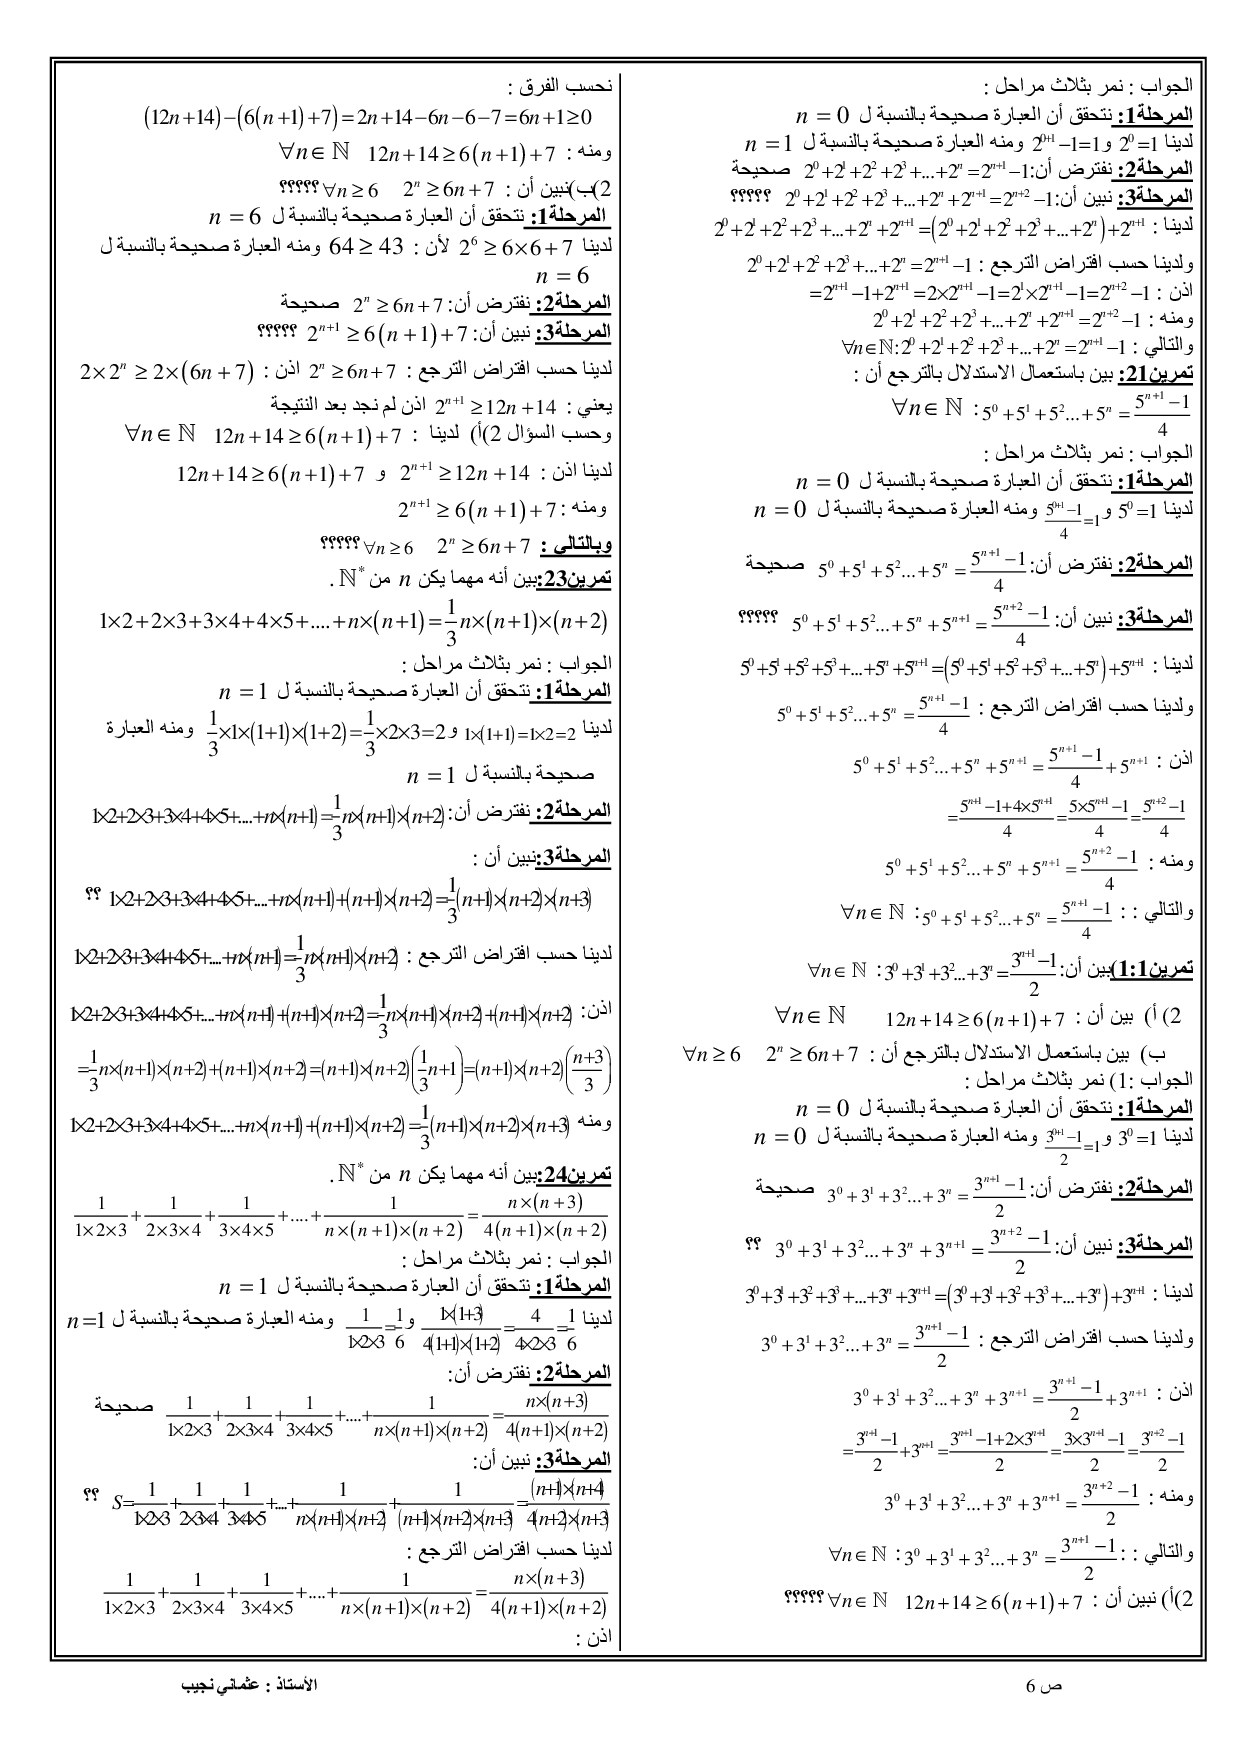 الجواب : نمر بثلاث مراحل :
المرحلة1: نتحقق أن العبارة صحيحة بالنسبة ل n = 0
لدينا 2^0 =1 و 2^{0+1} −1=1 ومنه العبارة صحيحة بالنسبة ل n = 1
المرحلة2: نفترض أن: 2^0 +2^1 +2^2 +2^3 +...+2^n =2^{n+1} −1 صحيحة
المرحلة3: نبين أن: 2^0 +2^1 +2^2 +2^3 +...+2^n +2^{n+1} =2^{n+2} −1 ؟؟؟؟؟
لدينا : 2^0 +2^1 +2^2 +2^3 +...+2^n +2^{n+1} =(2^0 +2^1 +2^2 +2^3 +...+2^n )+2^{n+1}
ولدينا حسب افتراض الترجع : 2^0 +2^1 +2^2 +2^3 +...+2^n =2^{n+1} −1
اذن : =2^{n+1} −1+2^{n+1} =2×2^{n+1} −1=2^1×2^{n+1} −1=2^{n+2} −1
ومنه : 2^0 +2^1 +2^2 +2^3 +...+2^n +2^{n+1} =2^{n+2} −1
والتالي : ∀n∈ℕ: 2^0 +2^1 +2^2 +2^3 +...+2^n =2^{n+1} −1
تمرين21: بين باستعمال الاستدلال بالترجع أن :
∀n∈ ℕ : 5^0 +5^1 +5^2 ...+5^n = (5^{n+1} −1)/4
الجواب : نمر بثلاث مراحل :
المرحلة1: نتحقق أن العبارة صحيحة بالنسبة ل n = 0
لدينا 5^0 =1 و (5^{0+1} −1)/4 =1 ومنه العبارة صحيحة بالنسبة ل n = 0
المرحلة2: نفترض أن: 5^0 +5^1 +5^2 ...+5^n = (5^{n+1} −1)/4 صحيحة
المرحلة3: نبين أن: 5^0 +5^1 +5^2 ...+5^n +5^{n+1} = (5^{n+2} −1)/4 ؟؟؟؟؟
لدينا : 5^0 +5^1 +5^2 +5^3 +...+5^n +5^{n+1} =(5^0 +5^1 +5^2 +5^3 +...+5^n )+5^{n+1}
ولدينا حسب افتراض الترجع : 5^0 +5^1 +5^2 ...+5^n = (5^{n+1} −1)/4
اذن : 5^0 +5^1 +5^2 ...+5^n +5^{n+1} = (5^{n+1} −1)/4 +5^{n+1}
= (5^{n+1} −1+4×5^{n+1})/4 = (5×5^{n+1} −1)/4 = (5^{n+2} −1)/4
ومنه : 5^0 +5^1 +5^2 ...+5^n +5^{n+1} = (5^{n+2} −1)/4
والتالي : : ∀n∈ ℕ : 5^0 +5^1 +5^2 ...+5^n = (5^{n+1} −1)/4
تمرين1:1)بين أن: ∀n∈ ℕ : 3^0 +3^1 +3^2 ...+3^n = (3^{n+1} −1)/2
2) أ) بين أن : 12n+14 ≥ 6(n+1)+7 ∀n∈ ℕ
ب) بين باستعمال الاستدلال بالترجع أن : 2^n ≥ 6n+7 ∀n ≥ 6
الجواب :1) نمر بثلاث مراحل :
المرحلة1: نتحقق أن العبارة صحيحة بالنسبة ل n = 0
لدينا 3^0 =1 و (3^{0+1} −1)/2 =1 ومنه العبارة صحيحة بالنسبة ل n = 0
المرحلة2: نفترض أن: 3^0 +3^1 +3^2 ...+3^n = (3^{n+1} −1)/2 صحيحة
المرحلة3: نبين أن: 3^0 +3^1 +3^2 ...+3^n +3^{n+1} = (3^{n+2} −1)/2 ؟؟
لدينا : 3^0 +3^1 +3^2 +3^3 +...+3^n +3^{n+1} =(3^0 +3^1 +3^2 +3^3 +...+3^n )+3^{n+1}
ولدينا حسب افتراض الترجع : 3^0 +3^1 +3^2 ...+3^n = (3^{n+1} −1)/2
اذن : 3^0 +3^1 +3^2 ...+3^n +3^{n+1} = (3^{n+1} −1)/2 +3^{n+1}
= (3^{n+1} −1)/2 +3^{n+1} = (3^{n+1} −1+2×3^{n+1})/2 = (3×3^{n+1} −1)/2 = (3^{n+2} −1)/2
ومنه : 3^0 +3^1 +3^2 ...+3^n +3^{n+1} = (3^{n+2} −1)/2
والتالي : : ∀n∈ ℕ : 3^0 +3^1 +3^2 ...+3^n = (3^{n+1} −1)/2
2)أ) نبين أن : 12n+14 ≥ 6(n+1)+7 ∀n∈ ℕ ؟؟؟؟؟
نحسب الفرق :
(12n+14)−(6(n+1)+7)=2n+14−6n−6−7=6n+1≥0
ومنه : 12n+14 ≥ 6(n+1)+7 ∀n∈ ℕ
2)ب)نبين أن : 2^n ≥ 6n+7 ∀n ≥ 6 ؟؟؟؟؟
المرحلة1: نتحقق أن العبارة صحيحة بالنسبة ل n = 6
لدينا 2^6 ≥ 6×6+7 لأن : 64 ≥ 43 ومنه العبارة صحيحة بالنسبة ل
n = 6
المرحلة2: نفترض أن: 2^n ≥ 6n+7 صحيحة
المرحلة3: نبين أن: 2^{n+1} ≥ 6(n+1)+7 ؟؟؟؟؟
لدينا حسب افتراض الترجع : 2^n ≥ 6n+7 اذن : 2×2^n ≥ 2×(6n+7)
يعني : 2^{n+1} ≥ 12n+14 اذن لم نجد بعد النتيجة
وحسب السؤال 2)أ) لدينا : 12n+14 ≥ 6(n+1)+7 ∀n∈ ℕ
لدينا اذن : 2^{n+1} ≥ 12n+14 و 12n+14 ≥ 6(n+1)+7
ومنه : 2^{n+1} ≥ 6(n+1)+7
وبالتالي : 2^n ≥ 6n+7 ∀n ≥ 6 ؟؟؟؟؟
تمرين23:بين أنه مهما يكن n من ℕ* .
1×2+2×3+3×4+4×5+....+n×(n+1)= 1/3 n×(n+1)×(n+2)
الجواب : نمر بثلاث مراحل :
المرحلة1: نتحقق أن العبارة صحيحة بالنسبة ل n = 1
لدينا 1×(1+1)=1×2=2 و 1/3 ×1×(1+1)×(1+2)= 1/3 ×2×3=2 ومنه العبارة
صحيحة بالنسبة ل n = 1
المرحلة2: نفترض أن: 1×2+2×3+3×4+4×5+....+n×(n+1)= 1/3 n×(n+1)×(n+2)
المرحلة3:نبين أن :
1×2+2×3+3×4+4×5+....+n×(n+1)+(n+1)×(n+2)= 1/3 (n+1)×(n+2)×(n+3) ؟؟
لدينا حسب افتراض الترجع : 1×2+2×3+3×4+4×5+....+n×(n+1)= 1/3 n×(n+1)×(n+2)
اذن: 1×2+2×3+3×4+4×5+....+n×(n+1)+(n+1)×(n+2)= 1/3 n×(n+1)×(n+2)+(n+1)×(n+2)
= 1/3 n×(n+1)×(n+2)+(n+1)×(n+2)=(n+1)×(n+2)(1/3 n+1)=(n+1)×(n+2)((n+3)/3)
ومنه 1×2+2×3+3×4+4×5+....+n×(n+1)+(n+1)×(n+2)= 1/3 (n+1)×(n+2)×(n+3)
تمرين24:بين أنه مهما يكن n من ℕ* .
1/(1×2×3) + 1/(2×3×4) + 1/(3×4×5) +....+ 1/(n×(n+1)×(n+2)) = n×(n+3)/(4(n+1)×(n+2))
الجواب : نمر بثلاث مراحل :
المرحلة1: نتحقق أن العبارة صحيحة بالنسبة ل n = 1
لدينا 1×(1+3)/(4(1+1)×(1+2)) = 4/(4×2×3) = 1/6 و 1/(1×2×3) = 1/6 ومنه العبارة صحيحة بالنسبة ل n =1
المرحلة2: نفترض أن:
1/(1×2×3) + 1/(2×3×4) + 1/(3×4×5) +....+ 1/(n×(n+1)×(n+2)) = n×(n+3)/(4(n+1)×(n+2)) صحيحة
المرحلة3: نبين أن:
S= 1/(1×2×3) + 1/(2×3×4) + 1/(3×4×5) +....+ 1/(n×(n+1)×(n+2)) + 1/((n+1)×(n+2)×(n+3)) = (n+1)×(n+4)/(4(n+2)×(n+3)) ؟؟
لدينا حسب افتراض الترجع :
1/(1×2×3) + 1/(2×3×4) + 1/(3×4×5) +....+ 1/(n×(n+1)×(n+2)) = n×(n+3)/(4(n+1)×(n+2))
اذن :
ص 6
الأستاذ : عثماني نجيب